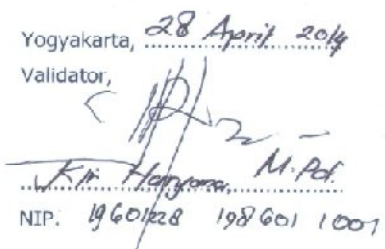 Yogyakarta, 28 April 2014
Validator,
Haryono, M.Pd.
NIP. 19601228 198601 1001